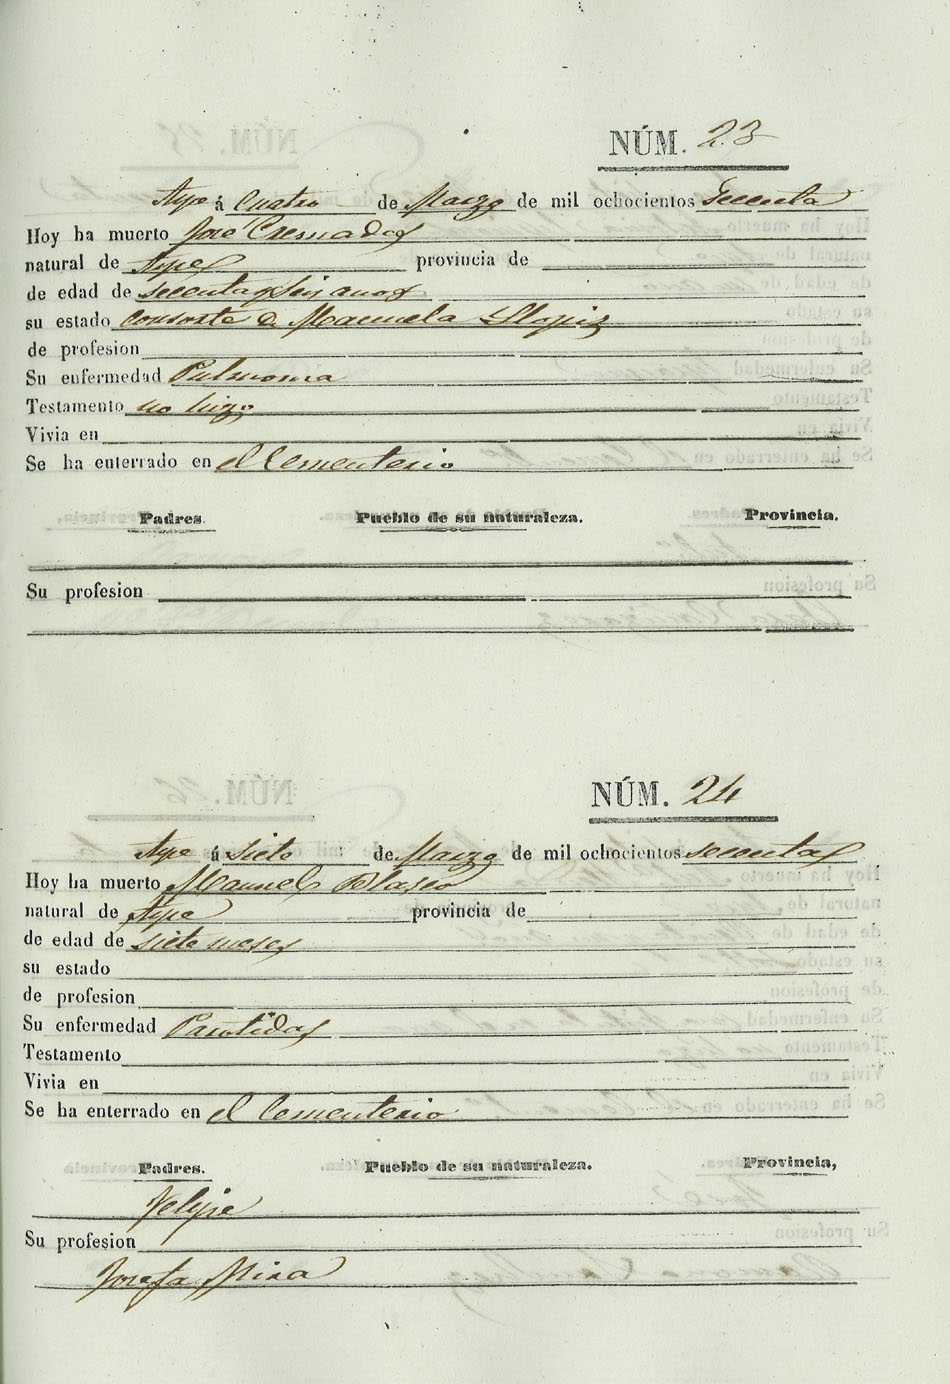 NÚM. 23
Aspe á Cuatro de Marzo de mil ochocientos secenta
Hoy ha muerto José Cremades
natural de Aspe provincia de
de edad de secenta y seis años
su estado consorte de Manuela Llopiz
de profesion
Su enfermedad Pulmonia
Testamento no hizo
Vivia en
Se ha enterrado en el Cementerio
Padres. Pueblo de su naturaleza. Provincia.
Su profesion
NÚM. 24
Aspe á siete de Marzo de mil ochocientos secenta
Hoy ha muerto Manuel Blasco
natural de Aspe provincia de
de edad de siete meses
su estado
de profesion
Su enfermedad Parotidas
Testamento
Vivia en
Se ha enterrado en el Cementerio
Padres. Pueblo de su naturaleza. Provincia,
Felipe
Su profesion
Josefa Mira